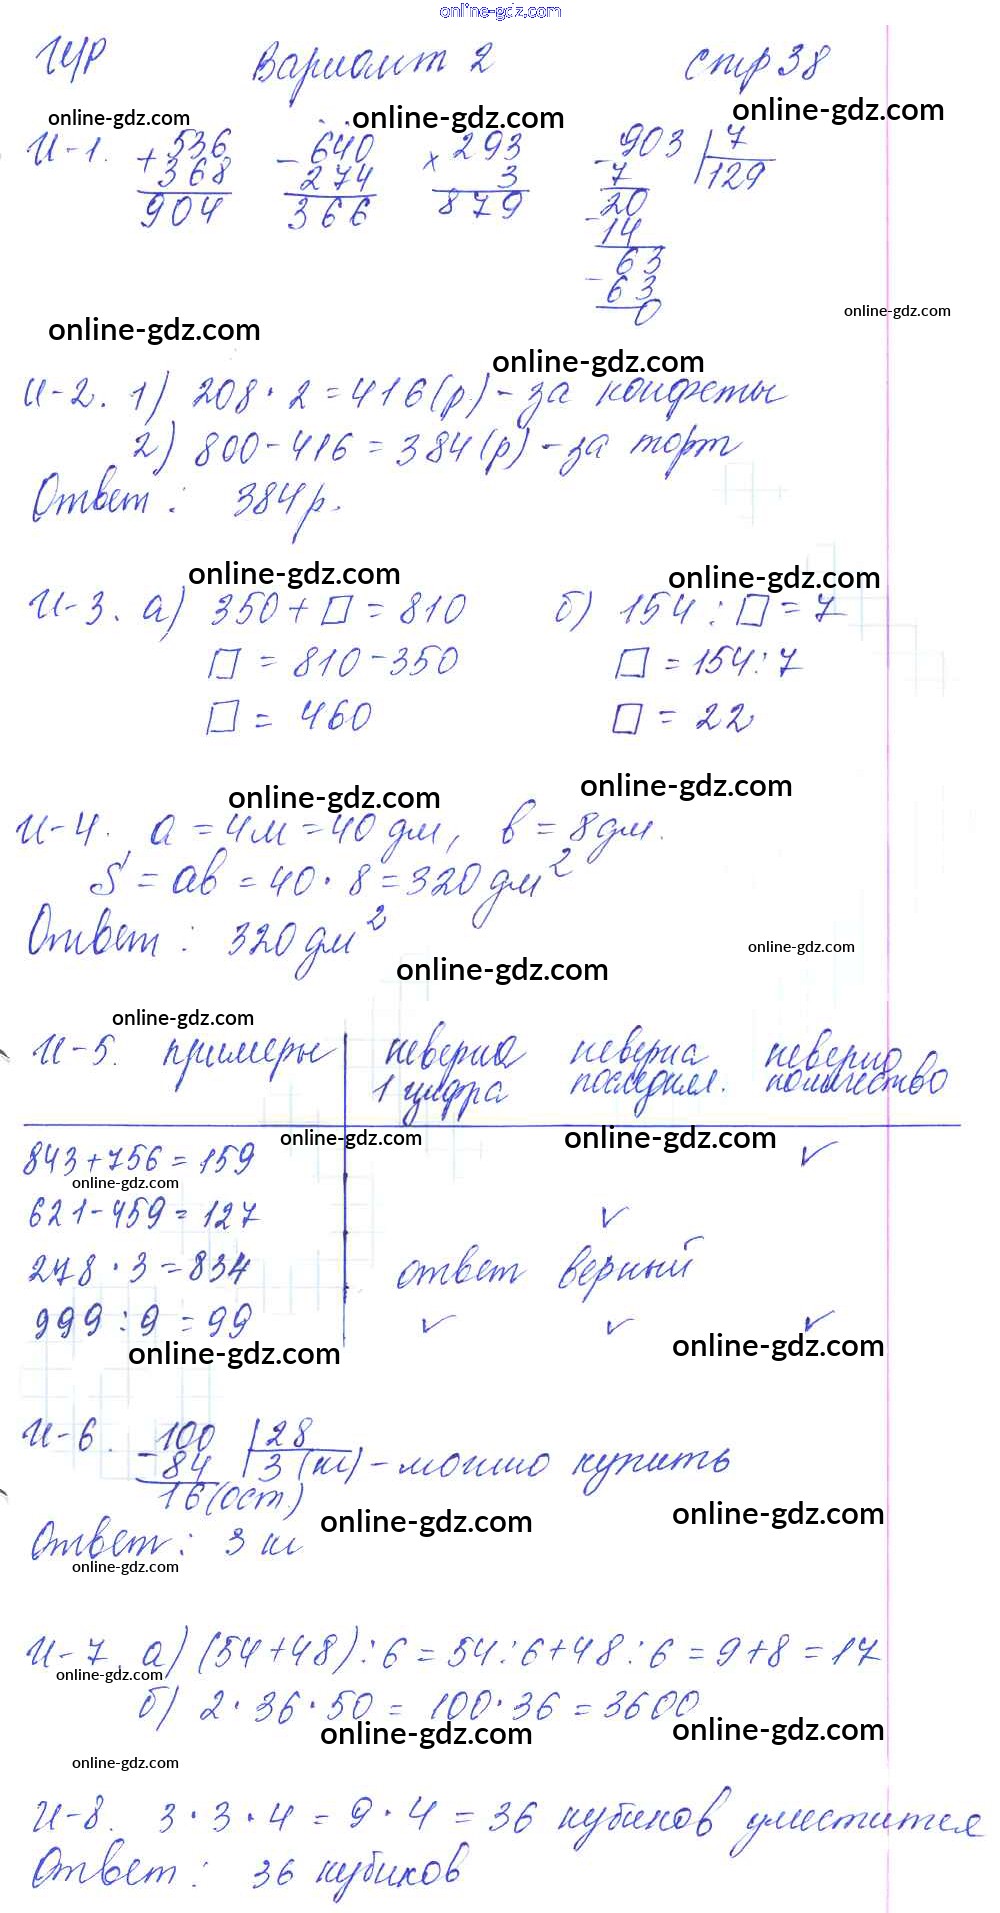 online-gdz.com
ИЧР Вариант 2 стр 38
online-gdz.com online-gdz.com online-gdz.com
И-1. + 536 - 640 x 293 - 903 7
368 274 3 7 129
904 366 879 - 20
14
- 63
63
0
online-gdz.com
online-gdz.com
online-gdz.com
И-2. 1) 208 · 2 = 416 (р.) - за конфеты
2) 800 - 416 = 384 (р) - за торт
Ответ: 384 р.
online-gdz.com online-gdz.com
И-3. а) 350 + □ = 810 б) 154 : □ = 7
□ = 810 - 350 □ = 154 : 7
□ = 460 □ = 22
online-gdz.com online-gdz.com
И-4. a = 4м = 40 дм, в = 8 дм.
S = ab = 40 · 8 = 320 дм²
Ответ: 320 дм²
online-gdz.com
online-gdz.com
online-gdz.com
И-5. примеры неверна неверна неверно
1 цифра последняя. количество
online-gdz.com online-gdz.com
843 + 756 = 159 ✓
online-gdz.com
621 - 459 = 127 ✓
278 · 3 = 834 ответ верный
999 : 9 = 99 ✓ ✓ ✓
online-gdz.com online-gdz.com
И-6. - 100 28
84 3 (ш) - можно купить
16 (ост)
online-gdz.com online-gdz.com
Ответ: 3 ш
online-gdz.com
И-7. а) (54 + 48) : 6 = 54 : 6 + 48 : 6 = 9 + 8 = 17
online-gdz.com
б) 2 · 36 · 50 = 100 · 36 = 3600
online-gdz.com online-gdz.com
online-gdz.com
И-8. 3 · 3 · 4 = 9 · 4 = 36 кубиков уместится
Ответ: 36 кубиков